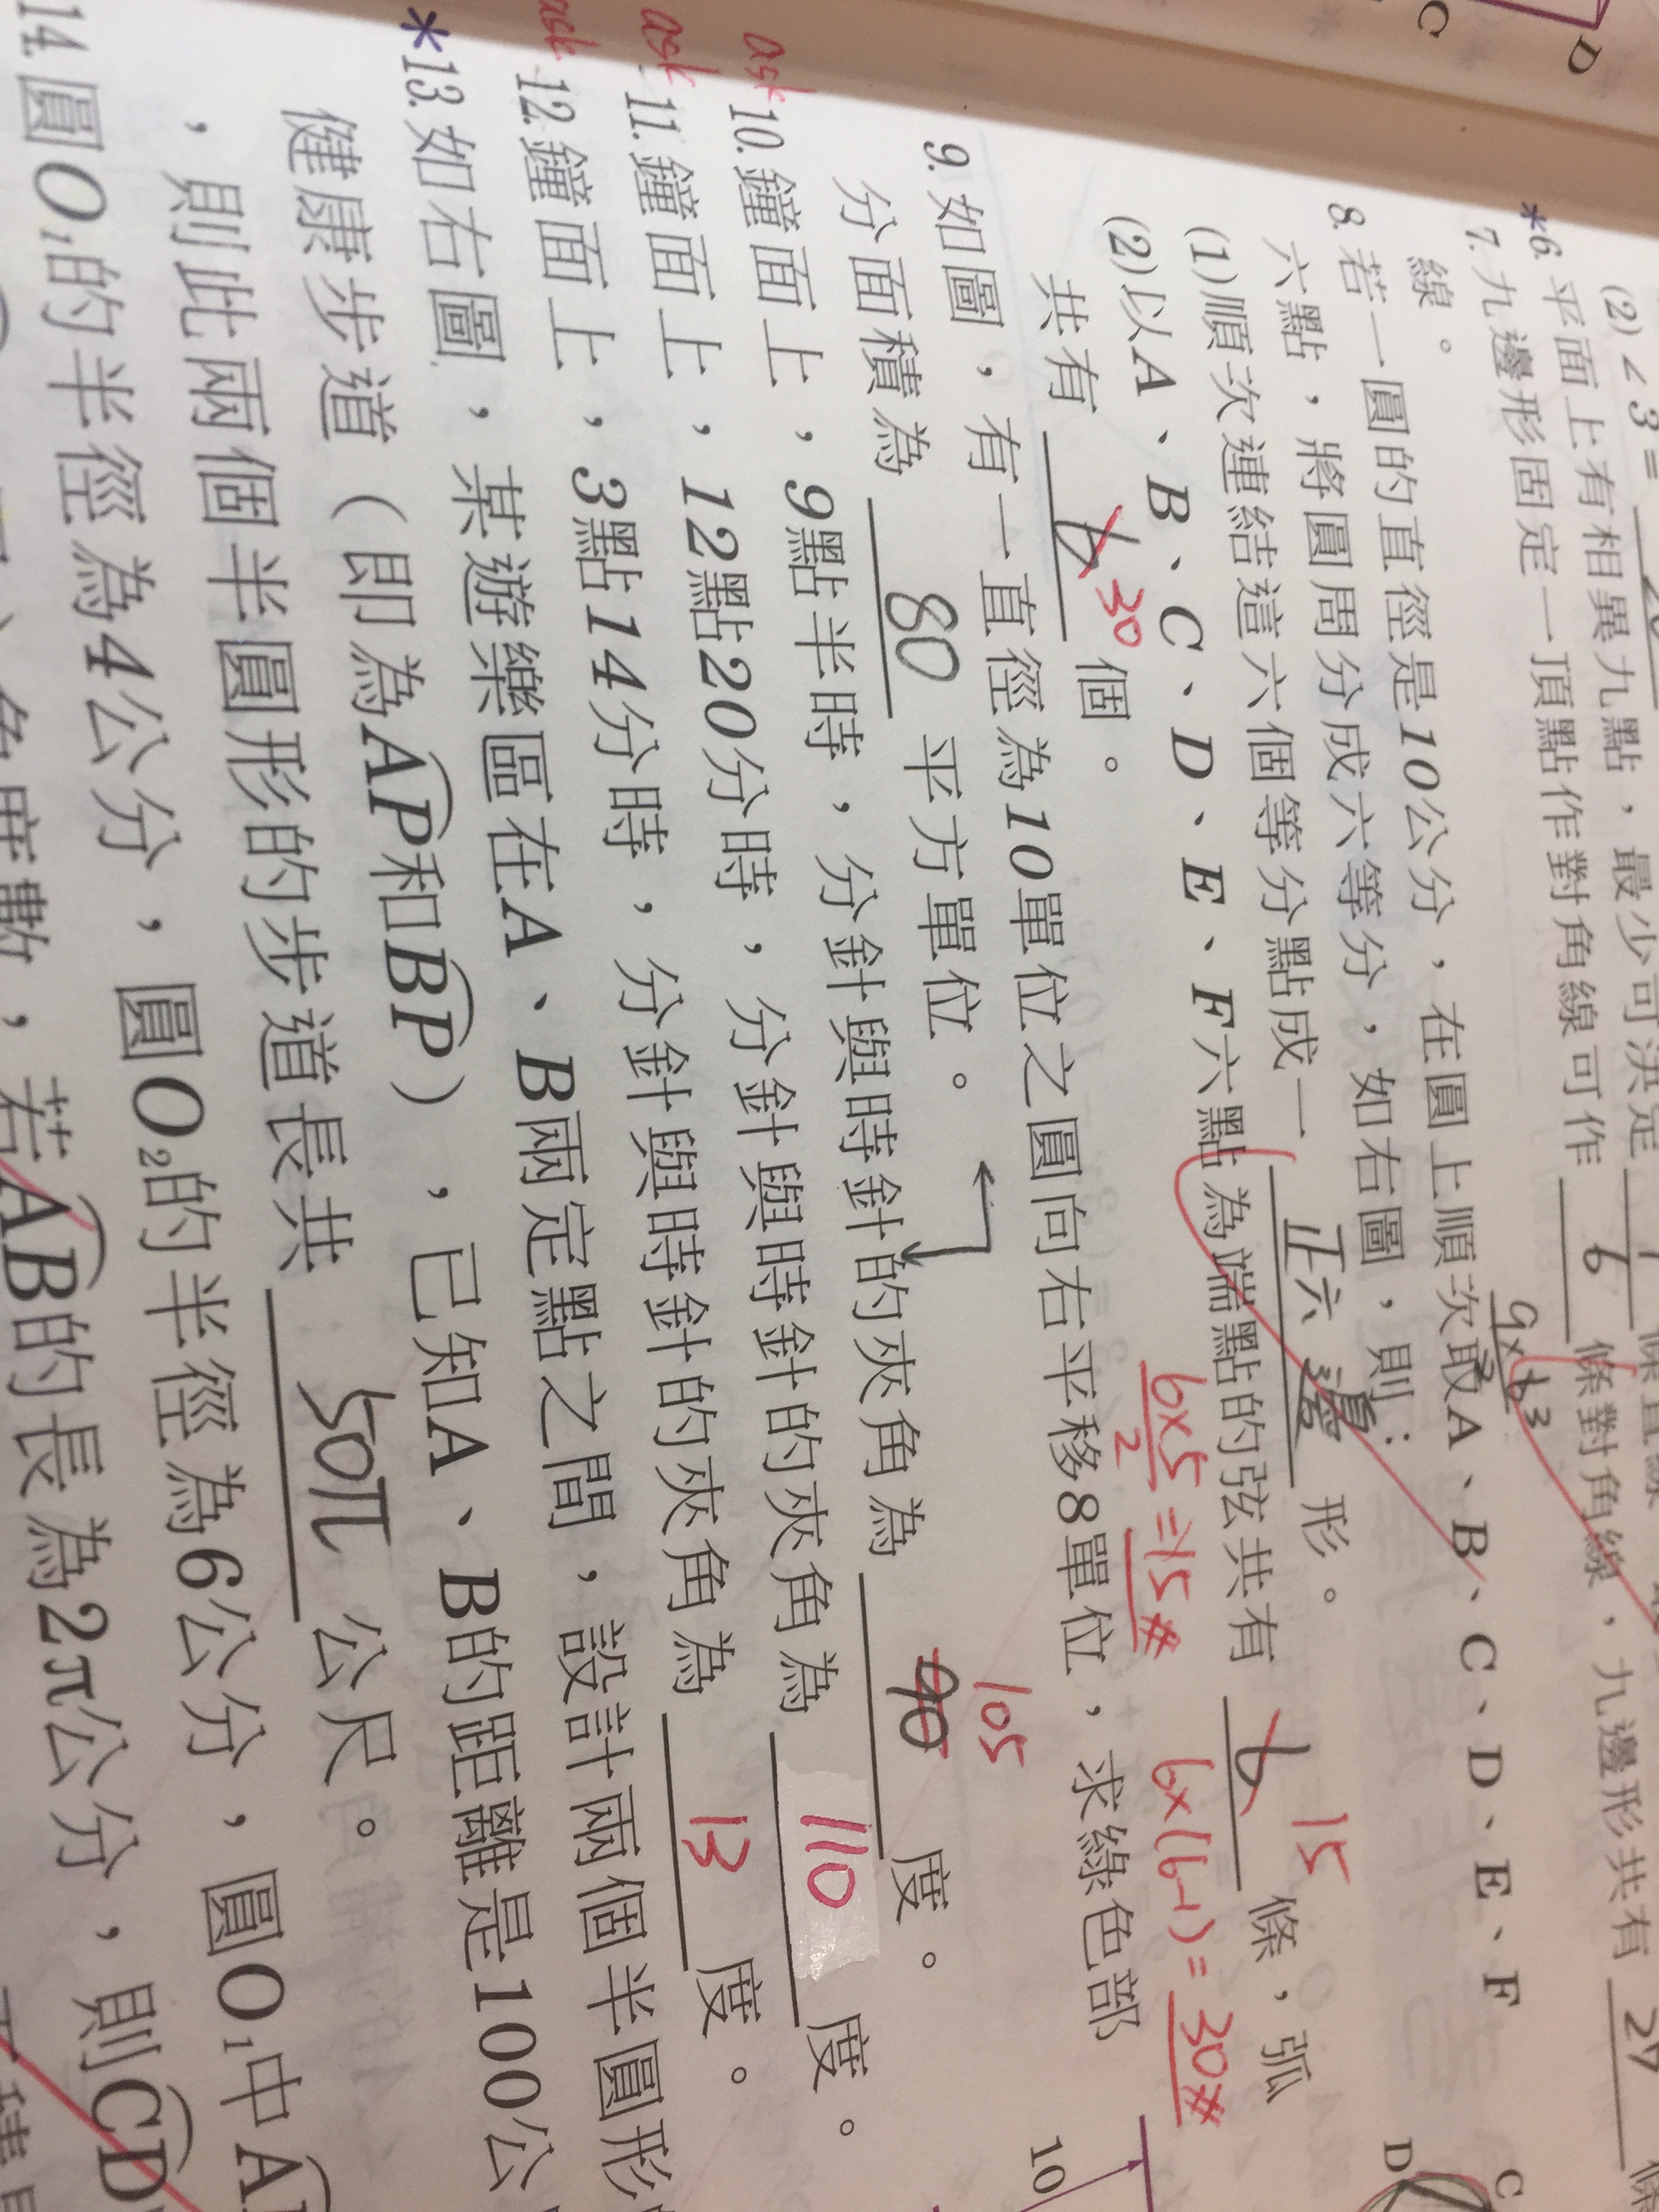 C
D
(2)∠3=
*6.平面上有相異九點,最少可決定
7.九邊形固定一頂點作對角線可作 6 條對角線,九邊形共有 27
線。
8.若一圓的直徑是10公分,在圓上順次取A、B、C、D、E、F
六點,將圓周分成六等分,如右圖,則:
(1)順次連結這六個等分點成一 正六邊 形。
(2)以A、B、C、D、E、F六點為端點的弦共有 6 15 條,弧
共有 6 30 個。
6×5/2=15# 6×(6-1)=30#
9.如圖,有一直徑為10單位之圓向右平移8單位,求綠色部
分面積為 80 平方單位。
ask 10.鐘面上,9點半時,分針與時針的夾角為 90 105 度。
ask 11.鐘面上,12點20分時,分針與時針的夾角為 110 度。
ask 12.鐘面上,3點14分時,分針與時針的夾角為 13 度。
*13.如右圖,某遊樂區在A、B兩定點之間,設計兩個半圓形
健康步道(即為AP和BP),已知A、B的距離是100公
,則此兩個半圓形的步道長共 50π 公尺。
14.圓O₁的半徑為4公分,圓O₂的半徑為6公分,圓O₁中
若AB的長為2π公分,則CD
10
D
C